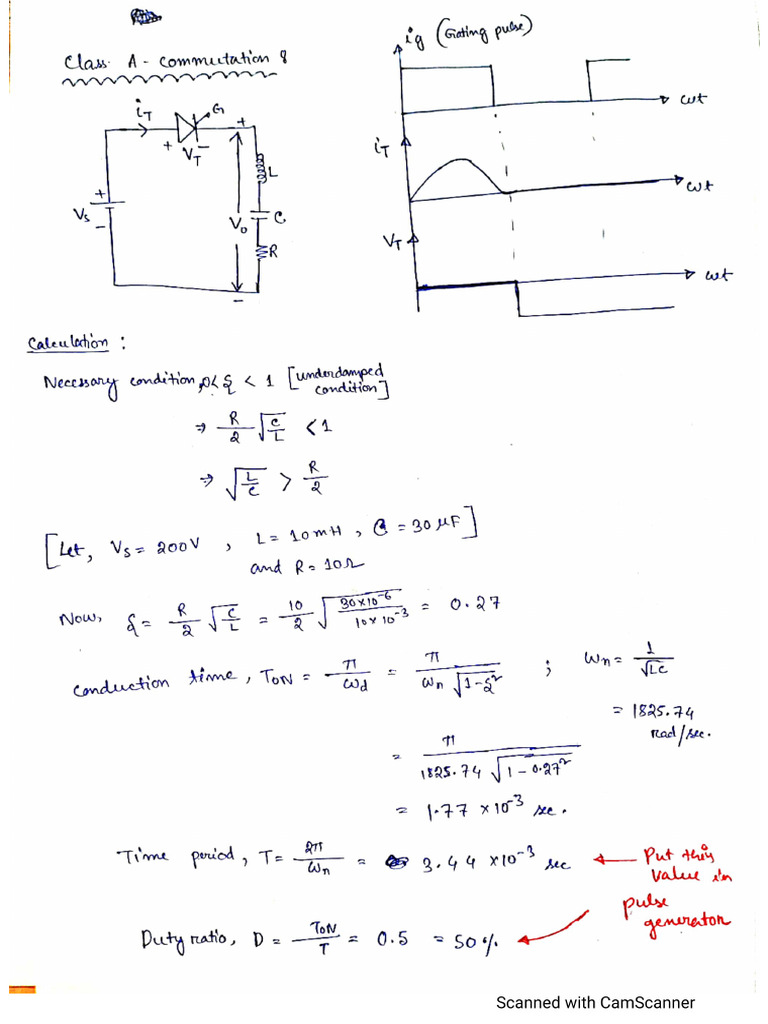 Class A - Commutation 8
iT
G
+
+ VT −
L
+
Vs
−
Vo
C
R
−
ig (Gating pulse)
ωt
iT
ωt
VT
ωt
Calculation :
Necessary condition, 0< ξ < 1 [underdamped condition]
⇒ R/2 √C/L < 1
⇒ √L/C > R/2
[Let, Vs = 200V , L = 10mH , C = 30 μF]
and R = 10Ω
Now, ξ = R/2 √C/L = 10/2 √30×10^-6/10×10^-3 = 0.27
conduction time, TON = π/ωd = π/ωn √1-ξ² ; ωn = 1/√LC
= 1825.74 rad/sec.
= π/1825.74 √1-0.27²
= 1.77 ×10^-3 sec.
Time period, T = 2π/ωn = 3.44 ×10^-3 sec ← Put this value in pulse generator
Duty ratio, D = TON/T = 0.5 = 50%
Scanned with CamScanner